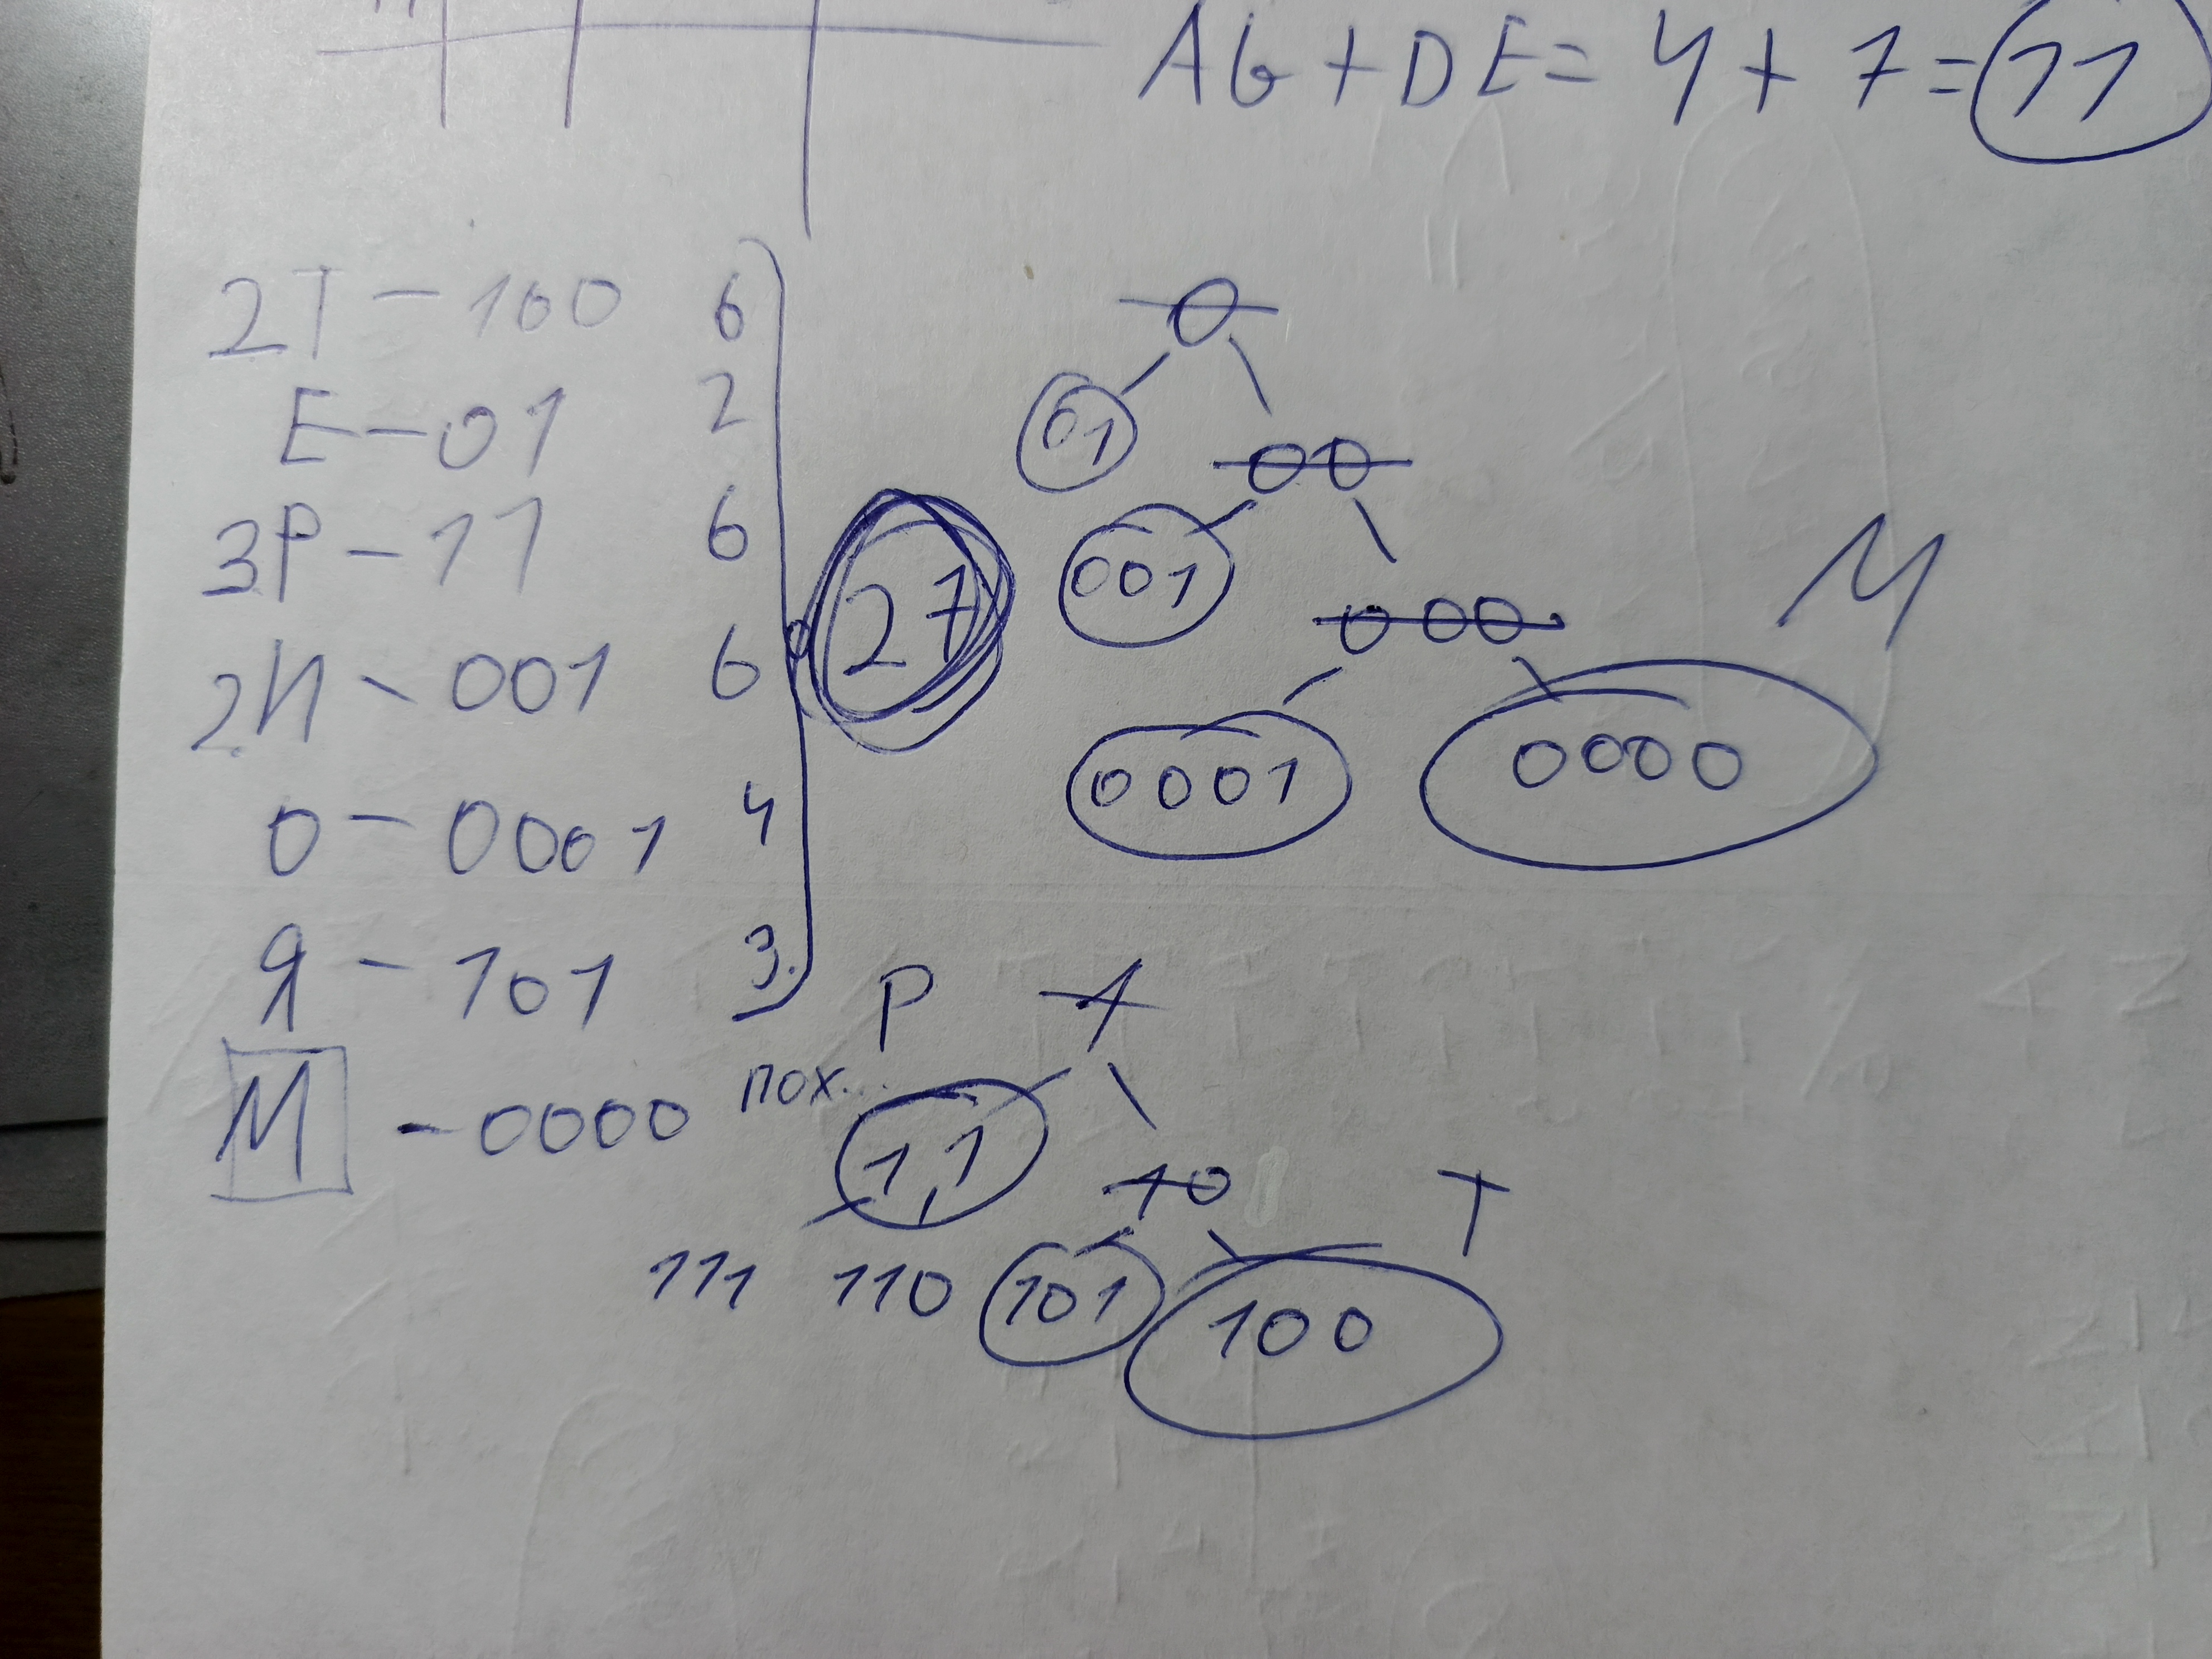 AG + DE = 4 + 7 = 11
2Т - 100 6
Е - 01 2
3Р - 11 6
2И - 001 6
О - 0001 4
Я - 101 3.
М - 0000 пох..
27
0
01 00
001 000
М
0001 0000
Р 1
11 10 Т
111 110 101 100